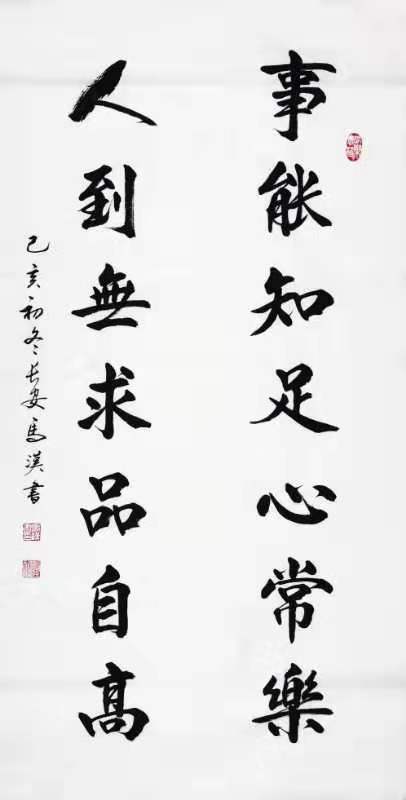 事能知足心常樂
人到無求品自高
己亥初冬長安馬漢書